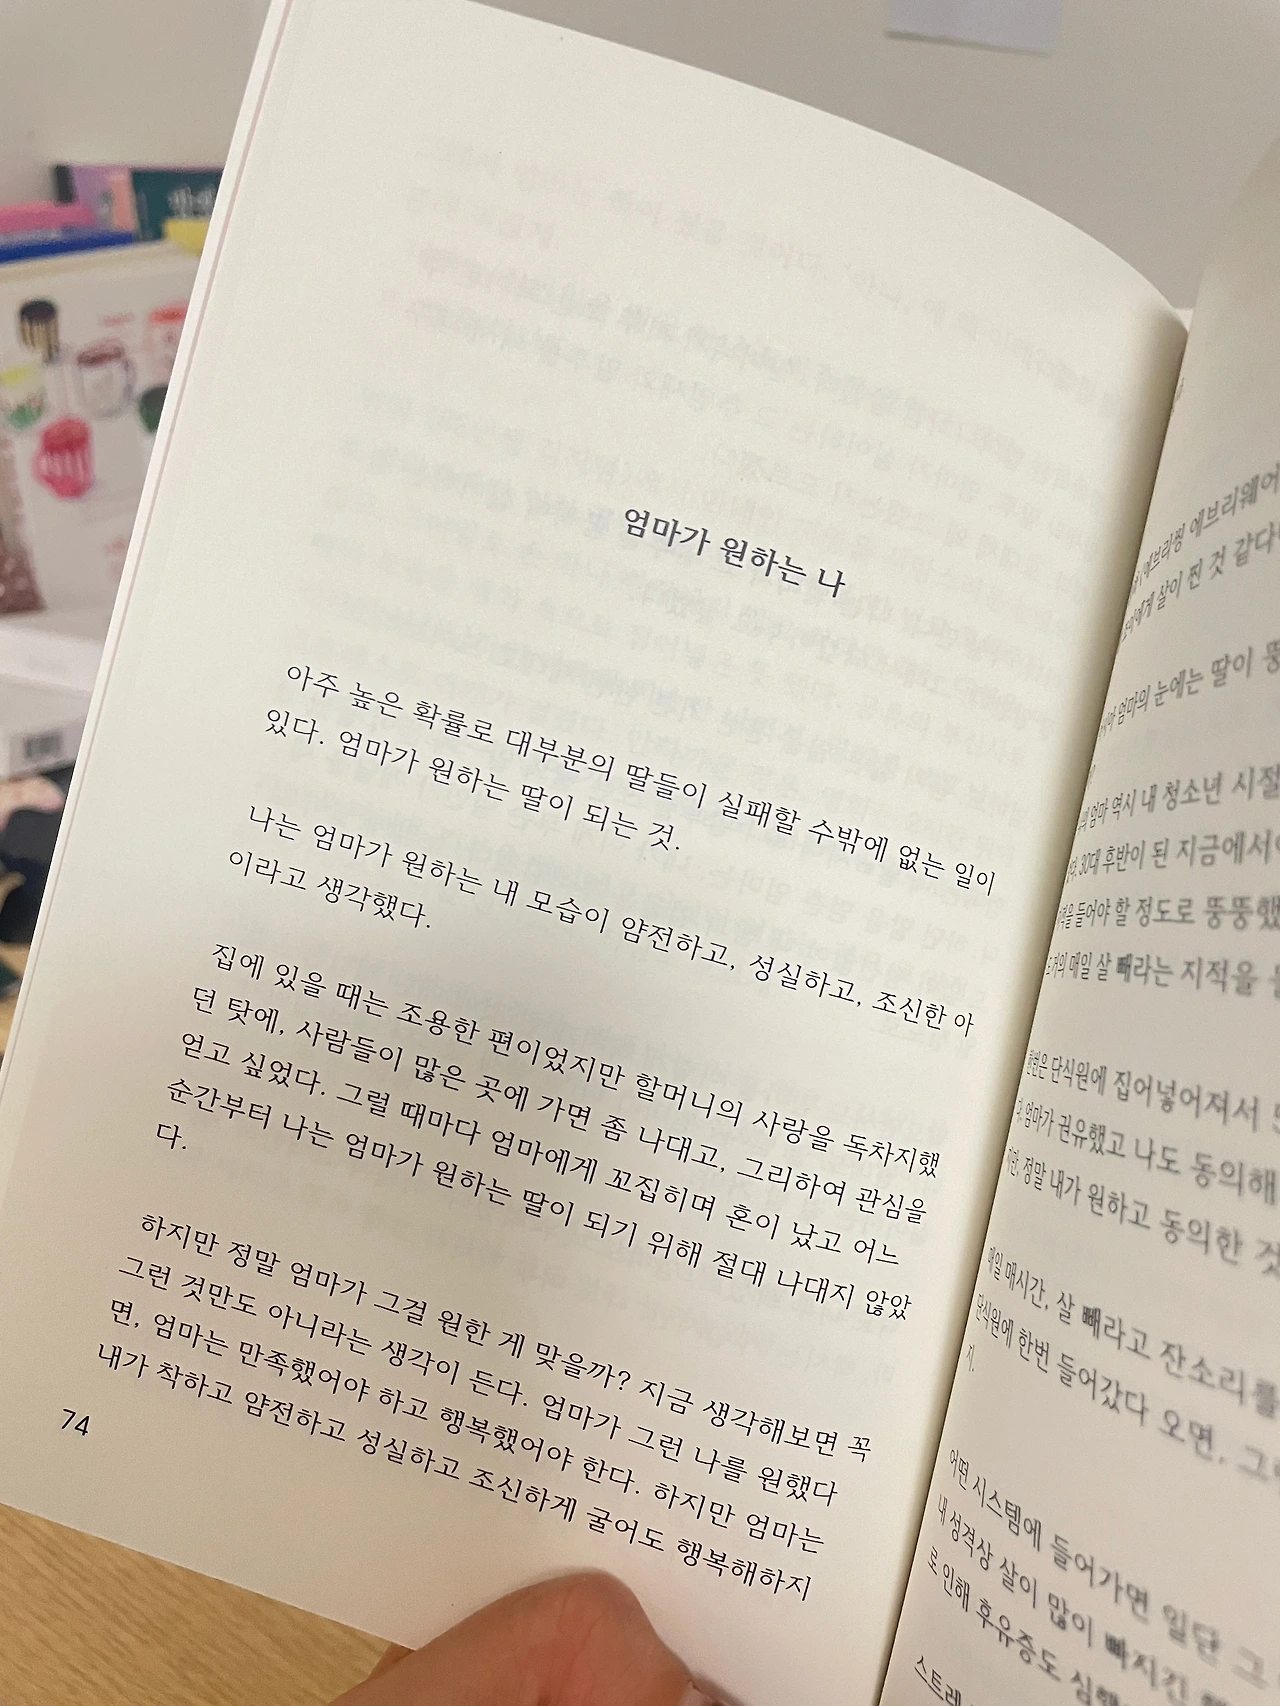 엄마가 원하는 나
아주 높은 확률로 대부분의 딸들이 실패할 수밖에 없는 일이
있다. 엄마가 원하는 딸이 되는 것.
나는 엄마가 원하는 내 모습이 얌전하고, 성실하고, 조신한 아
이라고 생각했다.
집에 있을 때는 조용한 편이었지만 할머니의 사랑을 독차지했
던 탓에, 사람들이 많은 곳에 가면 좀 나대고, 그리하여 관심을
얻고 싶었다. 그럴 때마다 엄마에게 꼬집히며 혼이 났고 어느
순간부터 나는 엄마가 원하는 딸이 되기 위해 절대 나대지 않았
다.
하지만 정말 엄마가 그걸 원한 게 맞을까? 지금 생각해보면 꼭
그런 것만도 아니라는 생각이 든다. 엄마가 그런 나를 원했다
면, 엄마는 만족했어야 하고 행복했어야 한다. 하지만 엄마는
내가 착하고 얌전하고 성실하고 조신하게 굴어도 행복해하지
74
에브리씽 에브리웨어
살이 찐 것 같다
엄마의 눈에는 딸이
엄마 역시 내 청소년 시절
30대 후반이 된 지금에서
들어야 할 정도로 뚱뚱했
거의 매일 살 빼라는 지적을
한번은 단식원에 집어넣어져서
엄마가 권유했고 나도 동의해
정말 내가 원하고 동의한 것
매일 매시간, 살 빼라고 잔소리를
단식원에 한번 들어갔다 오면,
지.
어떤 시스템에 들어가면 일단 그
내 성격상 살이 많이 빠지긴
로 인해 후유증도
스트레